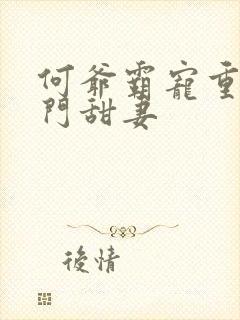 何爺霸寵重
門甜妻
後情